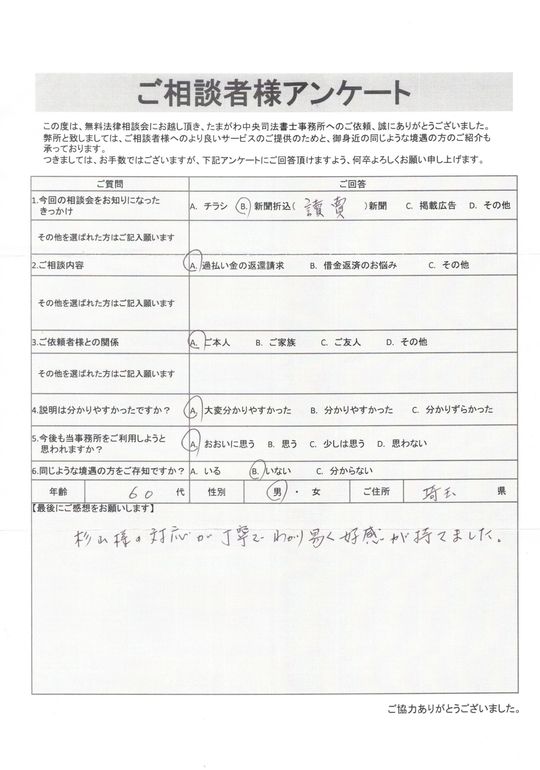 ご相談者様アンケート
この度は、無料法律相談会にお越し頂き、たまがわ中央司法書士事務所へのご依頼、誠にありがとうございました。
弊所と致しましては、ご相談者様へのより良いサービスのご提供のためと、御身近の同じような境遇の方のご紹介も
承っております。
つきましては、お手数ではございますが、下記アンケートにご回答頂けますよう、何卒よろしくお願い申し上げます。
ご質問 ご回答
1.今回の相談会をお知りになった
きっかけ
A. チラシ B. 新聞折込( 読賣 )新聞 C. 掲載広告 D. その他
その他を選ばれた方はご記入願います
2.ご相談内容 A. 過払い金の返還請求 B. 借金返済のお悩み C. その他
その他を選ばれた方はご記入願います
3.ご依頼者様との関係 A. ご本人 B. ご家族 C. ご友人 D. その他
その他を選ばれた方はご記入願います
4.説明は分かりやすかったですか? A. 大変分かりやすかった B. 分かりやすかった C. 分かりずらかった
5.今後も当事務所をご利用しようと
思われますか?
A. おおいに思う B. 思う C. 少しは思う D. 思わない
6.同じような境遇の方をご存知ですか? A. いる B. いない C. 分からない
年齢 60 代 性別 男 ・ 女 ご住所 埼玉 県
【最後にご感想をお願いします】
杉山様の対応が丁寧でわかり易く好感が持てました。
ご協力ありがとうございました。